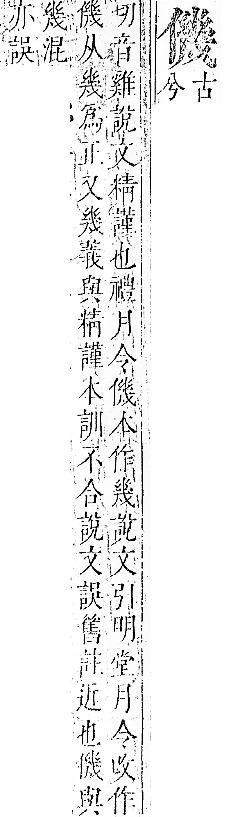 僟古兮
切音雞說文精謹也禮月令僟本作幾說文引明堂月令改作
僟从幾爲正又幾義與精謹本訓不合說文誤舊註近也僟與
幾混
亦誤